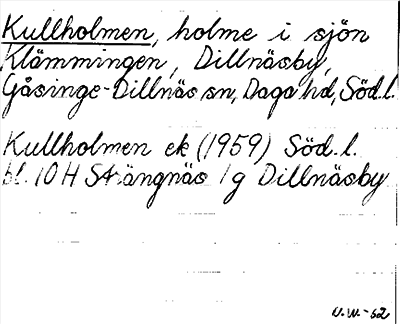 Kullholmen, holme i sjön
Klämmingen, Dillnäsby,
Gåsinge-Dillnäs sn, Daga hd, Söd.l.
Kullholmen ek (1959) Söd.l.
bl. 10H Strängnäs 1g Dillnäsby
U.W.-62